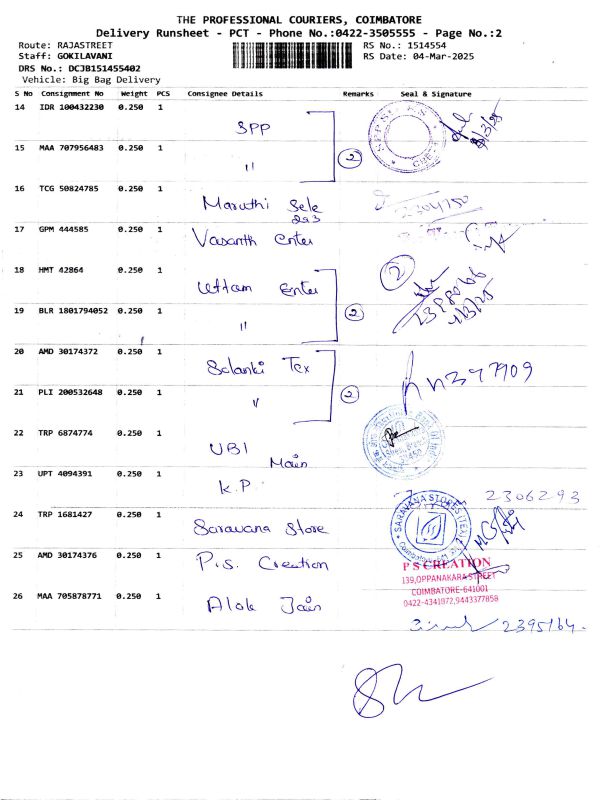 THE PROFESSIONAL COURIERS, COIMBATORE
Delivery Runsheet - PCT - Phone No.:0422-3505555 - Page No.:2
Route: RAJASTREET RS No.: 1514554
Staff: GOKILAVANI RS Date: 04-Mar-2025
DRS No.: DCJB151455402
Vehicle: Big Bag Delivery
S No Consignment No Weight PCS Consignee Details Remarks Seal & Signature
14 IDR 100432230 0.250 1 SPP
15 MAA 707956483 0.250 1 " 2
16 TCG 50824785 0.250 1 Maruthi Sele
293
17 GPM 444585 0.250 1 Vasanth Enter
18 HMT 42864 0.250 1 Uttam Enter 2
19 BLR 1801794052 0.250 1 " 2
20 AMD 30174372 0.250 1 Solanki Tex
21 PLI 200532648 0.250 1 " 2
22 TRP 6874774 0.250 1 UBI Main
23 UPT 4094391 0.250 1 K.P 2306293
24 TRP 1681427 0.250 1 Saravana Store SARAVANA STORES (TEX)
25 AMD 30174376 0.250 1 P.S. Creation
P S CREATION
139,OPPANAKARA STREET
COIMBATORE-641001
0422-4341072,9443377858
26 MAA 705878771 0.250 1 Alok Jain
2395164